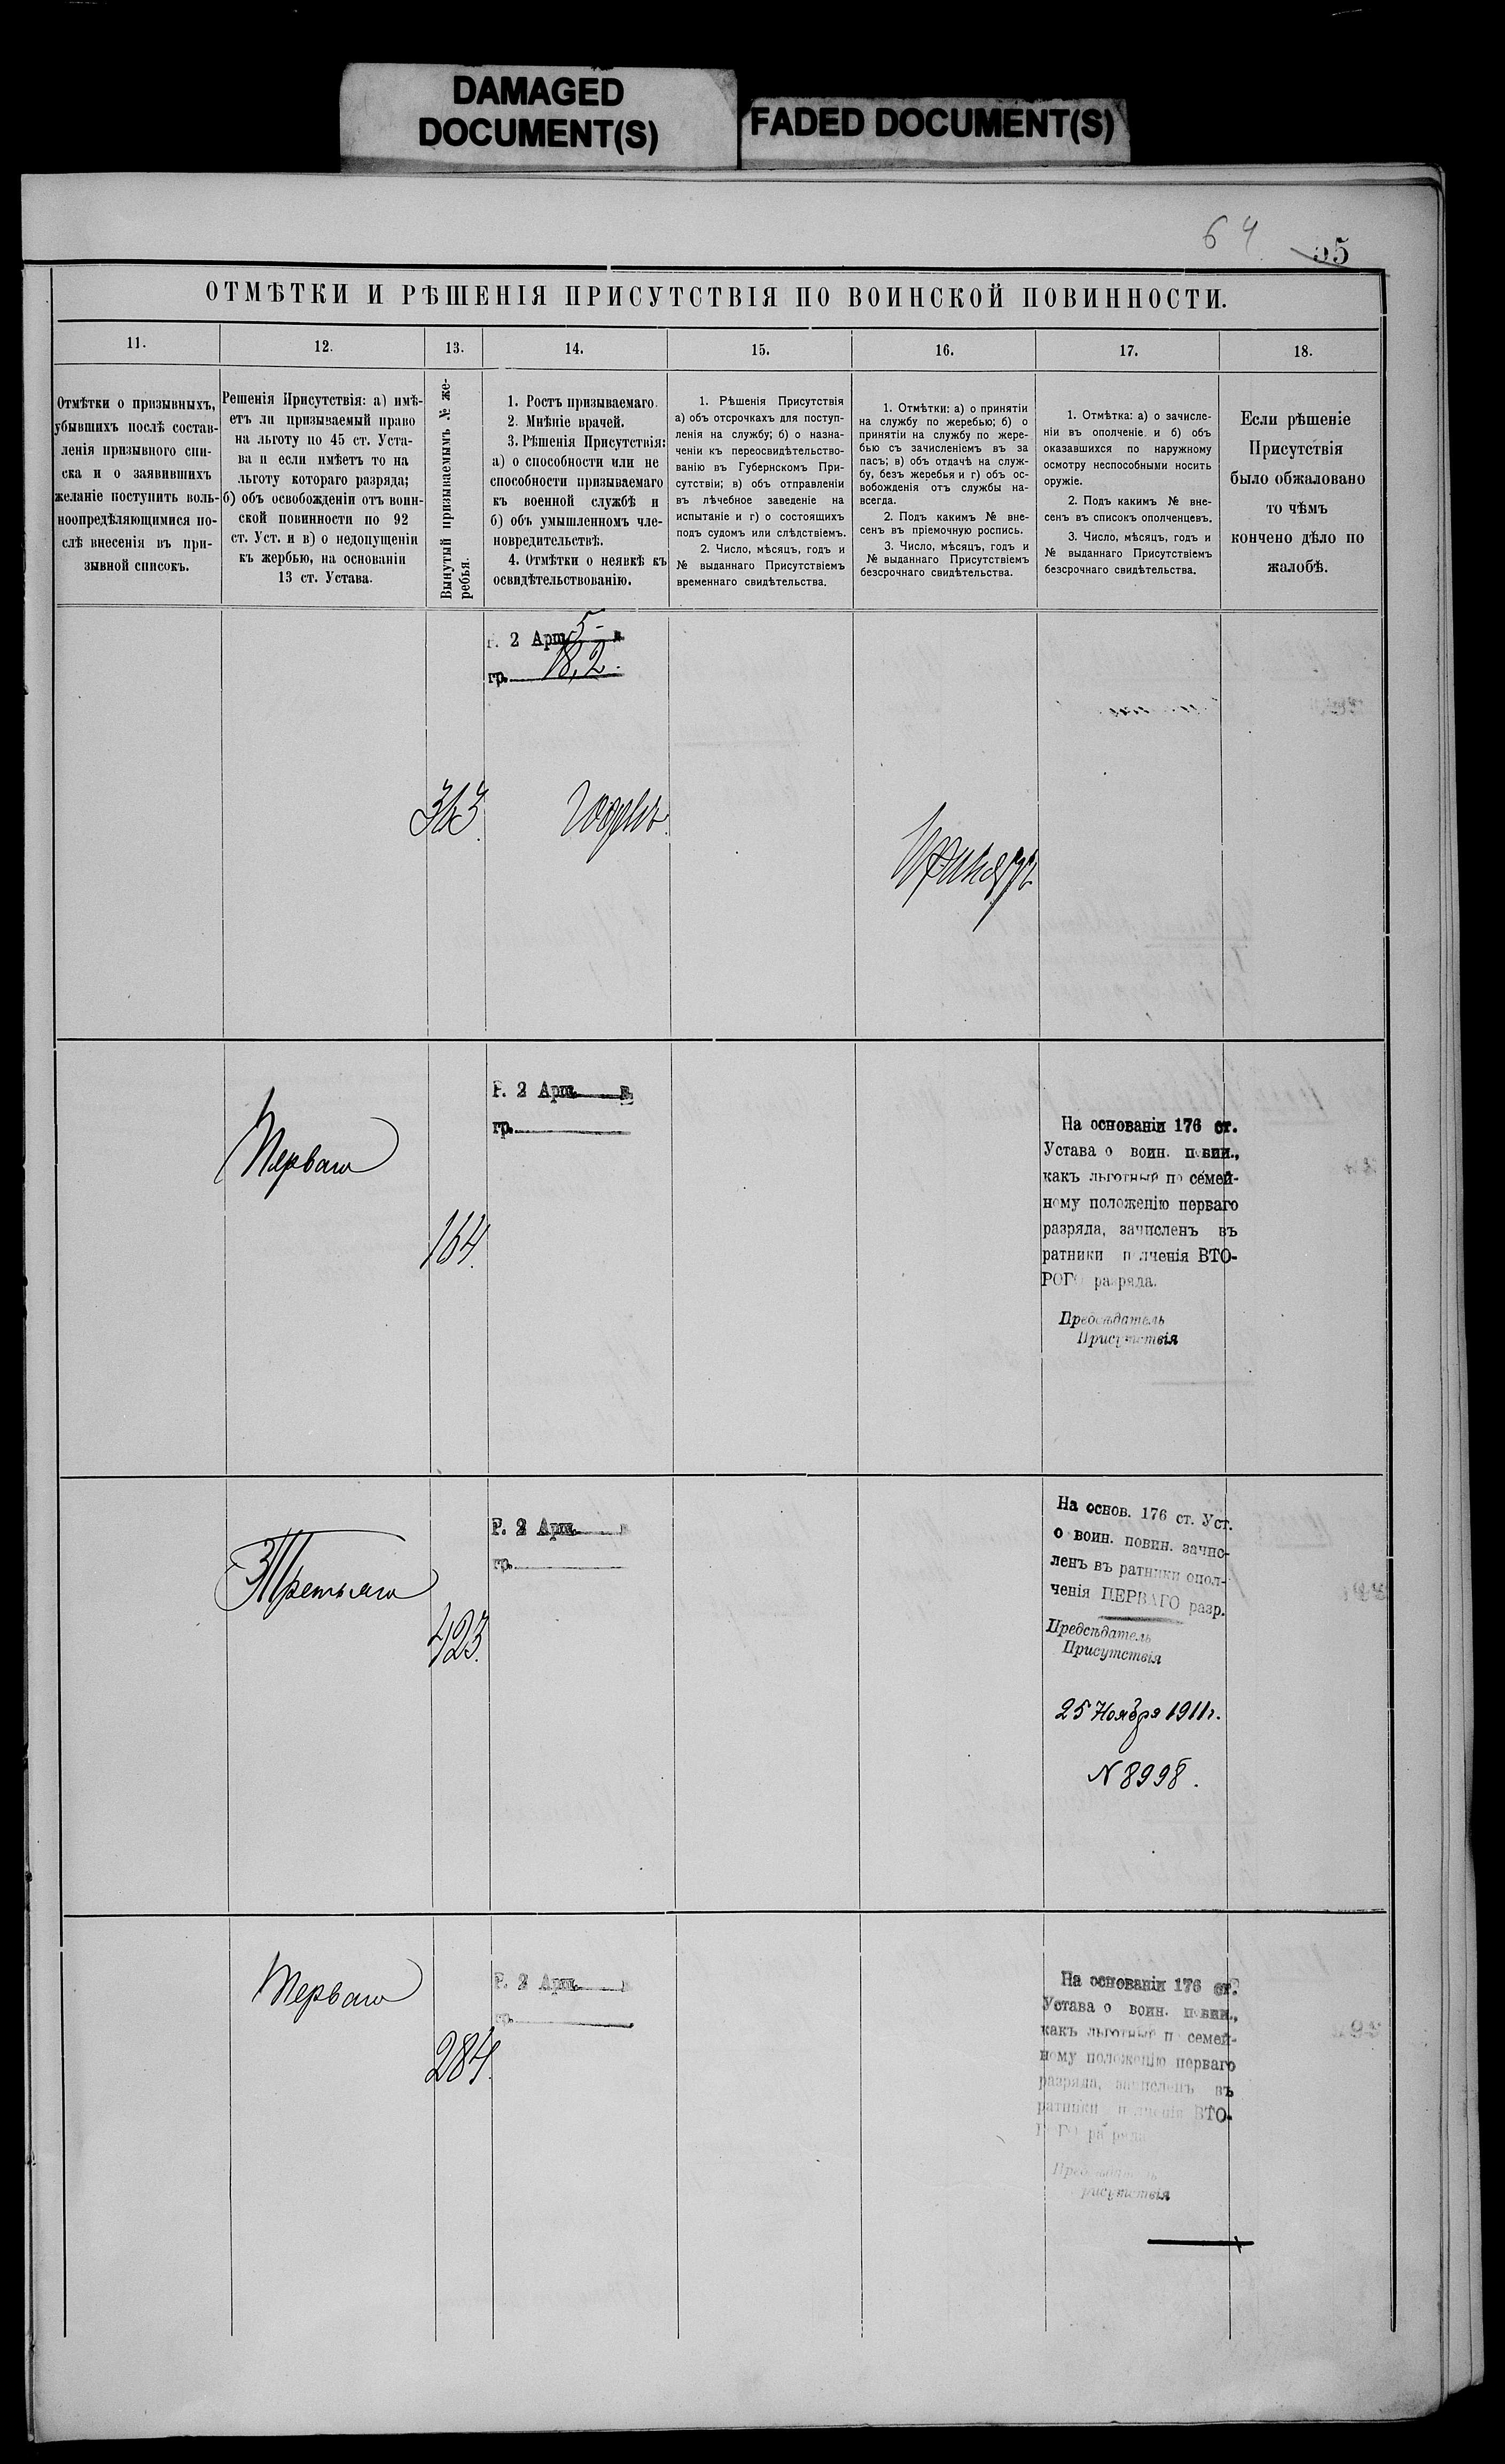 DAMAGED
DOCUMENT(S)
FADED DOCUMENT(S)
64
55
ОТМѢТКИ И РѢШЕНІЯ ПРИСУТСТВІЯ ПО ВОИНСКОЙ ПОВИННОСТИ.
11.
12.
13.
14.
15.
16.
17.
18.
Отмѣтки о призывныхъ,
убывшихъ послѣ состав-
ленія призывного спи-
ска и о заявившихъ
желаніе поступить воль-
ноопредѣляющимися по-
слѣ внесенія въ при-
зывной списокъ.
Решенія Присутствія: а) имѣ-
етъ ли призываемый право
на льготу по 45 ст. Уста-
ва и если имѣетъ то на
льготу котораго разряда;
б) объ освобожденіи отъ воин-
ской повинности по 92
ст. Уст. и в) о недопущеніи
къ жербью, на основаніи
13 ст. Устава.
Вынутый призываемымъ № же-
ребья.
1. Ростъ призываемаго.
2. Мнѣніе врачей.
3. Рѣшенія Присутствія:
а) о способности или не
способности призываемаго
къ военной службѣ и
б) объ умышленномъ чле-
новредительствѣ.
4. Отмѣтки о неявкѣ къ
освидѣтельствованію.
1. Рѣшенія Присутствія
а) объ отсрочкахъ для поступ-
ленія на службу; б) о назна-
ченіи къ переосвидѣтельство-
ванію въ Губернскомъ При-
сутствіи; в) объ отправленіи
въ лѣчебное заведеніе на
испытаніе и г) о состоящихъ
подъ судомъ или слѣдствіемъ.
2. Число, мѣсяцъ, годъ и
№ выданнаго Присутствіемъ
временнаго свидѣтельства.
1. Отмѣтки: а) о принятіи
на службу по жеребью; б) о
принятіи на службу по жере-
бью съ зачисленіемъ въ за
пасъ; в) объ отдачѣ на служ-
бу, безъ жеребья и г) объ ос-
вобожденія отъ службы на-
всегда.
2. Подъ какимъ № вне-
сенъ въ пріемочную роспись.
3. Число, мѣсяцъ, годъ и
№ выданнаго Присутствіемъ
безсрочнаго свидѣтельства.
1. Отмѣтка: а) о зачисле-
ніи въ ополченіе и б) объ
оказавшихся по наружному
осмотру неспособными носить
оружіе.
2. Подъ какимъ № вне-
сенъ въ списокъ ополченцевъ.
3. Число, мѣсяцъ, годъ и
№ выданнаго Присутствіемъ
безсрочнаго свидѣтельства.
Если рѣшеніе
Присутствія
было обжаловано
то чѣмъ
кончено дѣло по
жалобѣ.
Р. 2 Арш. 5 - в
гр. 18,2.
363.
Годенъ
Принятъ
Перваго
164.
Р. 2 Арш. в
гр.
На основаніи 176 ст.
Устава о воин. повин.,
какъ льготный по семей-
ному положенію перваго
разряда, зачисленъ въ
ратники полченія ВТО-
РОГО разряда.
Предсѣдатель
Присутствія
Третьяго
423.
Р. 2 Арш. в
гр.
На основ. 176 ст. Уст.
о воин. повин. зачис-
ленъ въ ратники опол-
ченія ПЕРВАГО разр.
Предсѣдатель
Присутствія
25 Ноября 1911г.
N 8998.
Перваго
284.
Р. 2 Арш. в
гр.
На основаніи 176 ст.
Устава о воин. повин.,
какъ льготный п семей-
ному положенію перваго
разряда, зачисленъ въ
ратники полченія ВТО-
РОГО разряда
Предсѣдатель
Присутствія